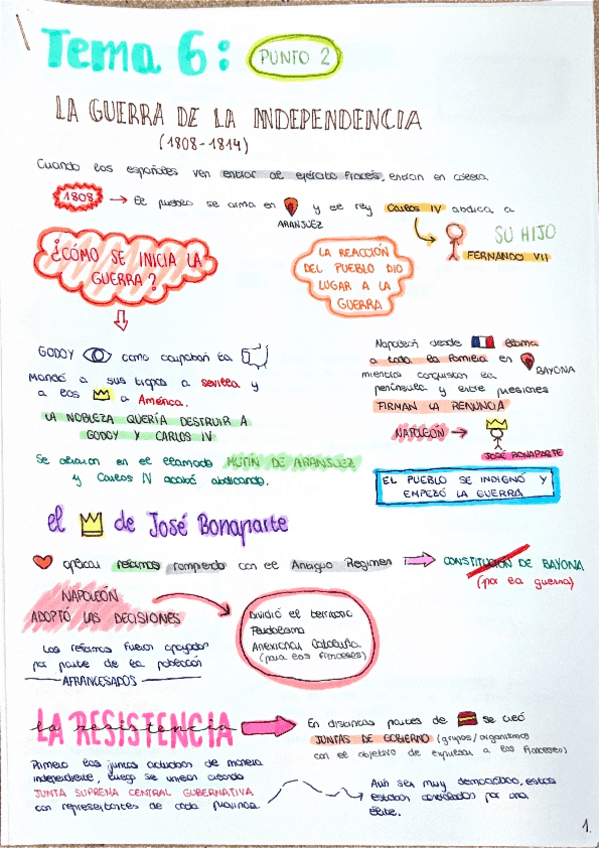 Tema 6:
PUNTO 2
LA GUERRA DE LA INDEPENDENCIA
(1808-1814)
Cuando los españoles ven entrar al ejército francés, entran en cólera.
1808 → El pueblo se arma en y el rey Carlos IV abdica a
ARANJUEZ
SU HIJO
FERNANDO VII
¿CÓMO SE INICIA LA
GUERRA?
LA REACCIÓN
DEL PUEBLO DIO
LUGAR A LA
GUERRA
GODOY como ocupaban la
Mandó a sus tropas a Sevilla y
a los a América.
LA NOBLEZA QUERÍA DESTRUIR A
GODOY Y CARLOS IV
Se aliaron en el llamado MOTÍN DE ARANJUEZ
y Carlos IV acabó abdicando.
Napoleón desde llama
a toda la familia en
BAYONA
mientras conquistan la
península y entre presiones
FIRMAN LA RENUNCIA
NAPOLEÓN →
JOSÉ BONAPARTE
EL PUEBLO SE INDIGNÓ Y
EMPEZÓ LA GUERRA
el de José Bonaparte
aplicar reformas rompiendo con el Antiguo Régimen
CONSTITUCIÓN DE BAYONA
(por la guerra)
NAPOLEÓN
ADOPTÓ LAS DECISIONES
Dividió el territorio
Feudalismo
Anexionar Cataluña
(para los franceses)
Las reformas fueron apoyadas
por parte de la población
AFRANCESADOS
LA RESISTENCIA
la resistencia
En distintas partes de se creó
JUNTAS DE GOBIERNO (grupos/organismos
con el objetivo de expulsar a los franceses)
Primero las juntas actuaban de manera
independiente, luego se unieron creando
JUNTA SUPREMA CENTRAL GUBERNATIVA
con representantes de cada provincia.
Aun ser muy democrático, estas
estaban controladas por una
élite.
1.